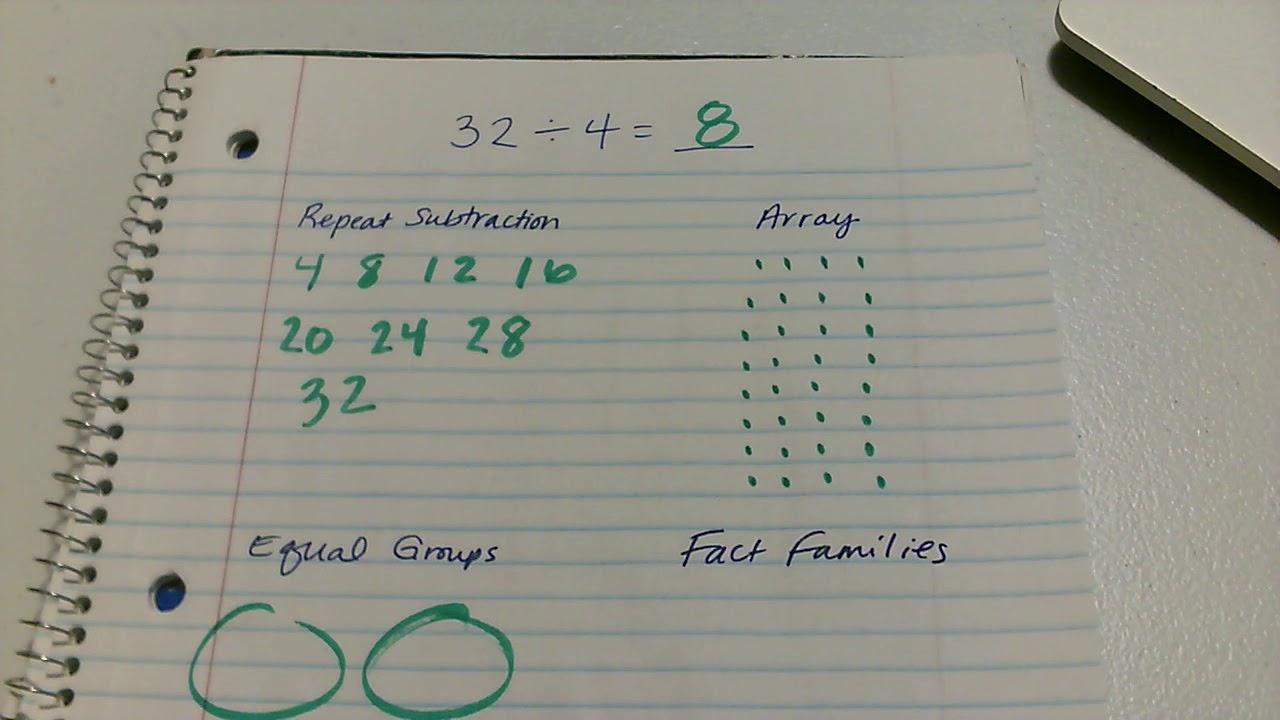 32 ÷ 4 = 8
Repeat Subtraction
4 8 12 16
20 24 28
32
Array
Equal Groups
Fact Families